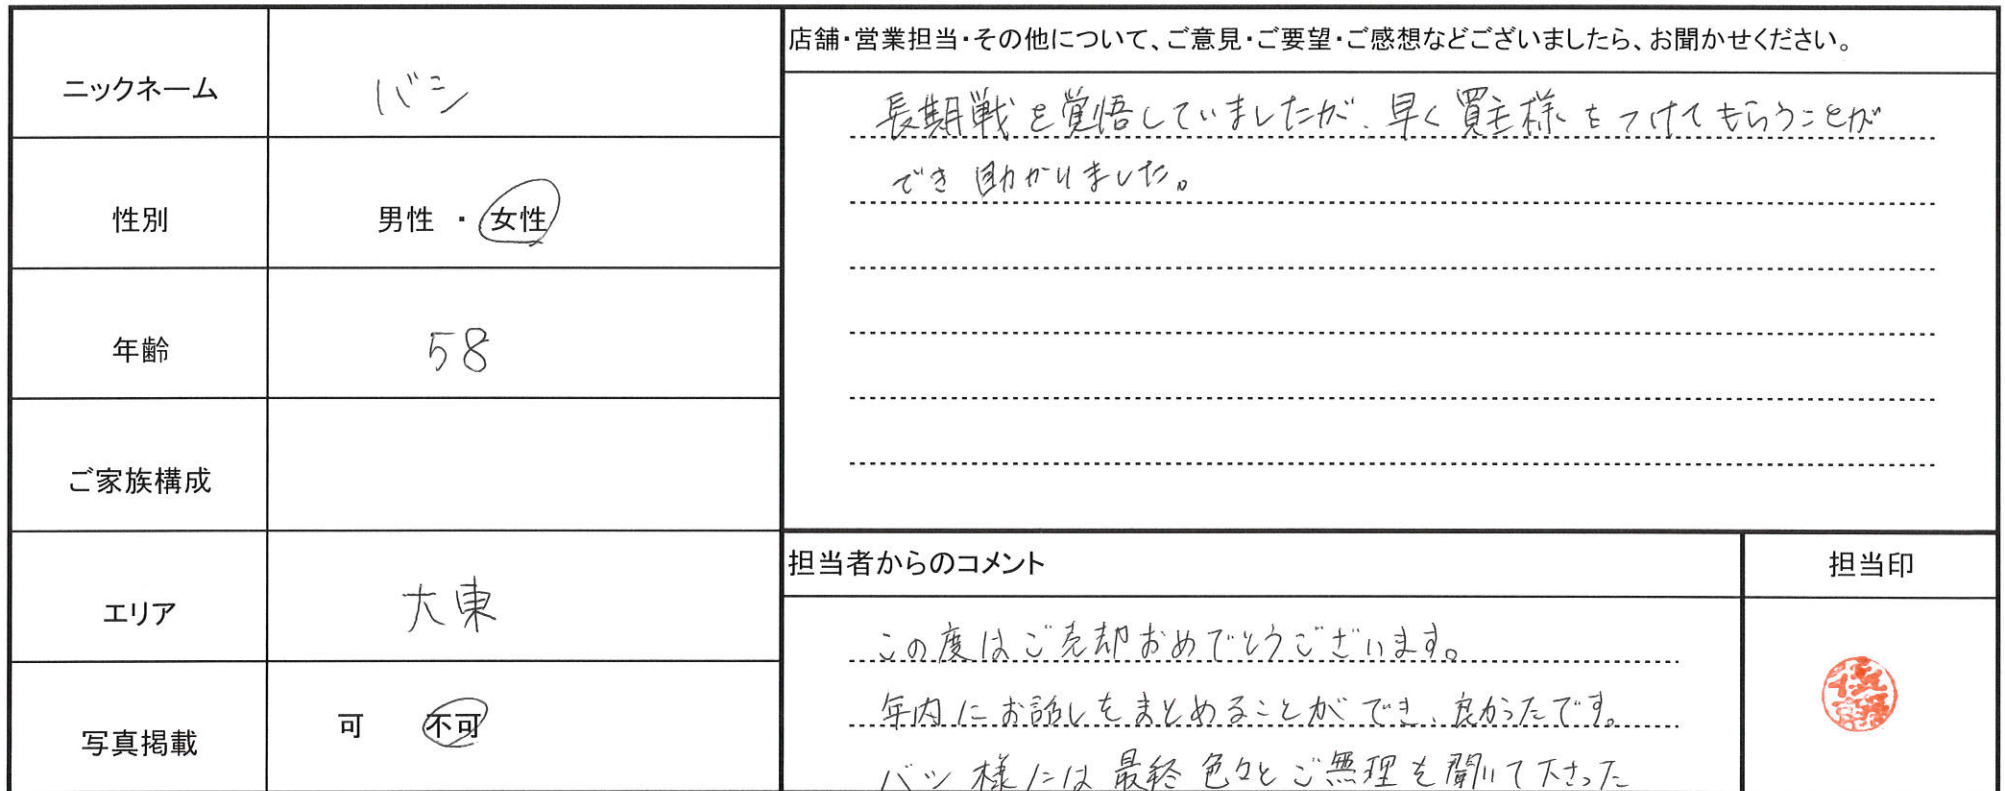 ニックネーム
バシ
性別
男性 ・ 女性
年齢
58
ご家族構成
エリア
大東
写真掲載
可 不可
店舗・営業担当・その他について、ご意見・ご要望・ご感想などございましたら、お聞かせください。
長期戦を覚悟していましたが、早く買主様をつけてもらうことが
でき助かりました。
担当者からのコメント
この度はご売却おめでとうございます。
年内にお話しをまとめることができ、良かったです。
バシ様には最終色々とご無理を聞いて下さった
担当印